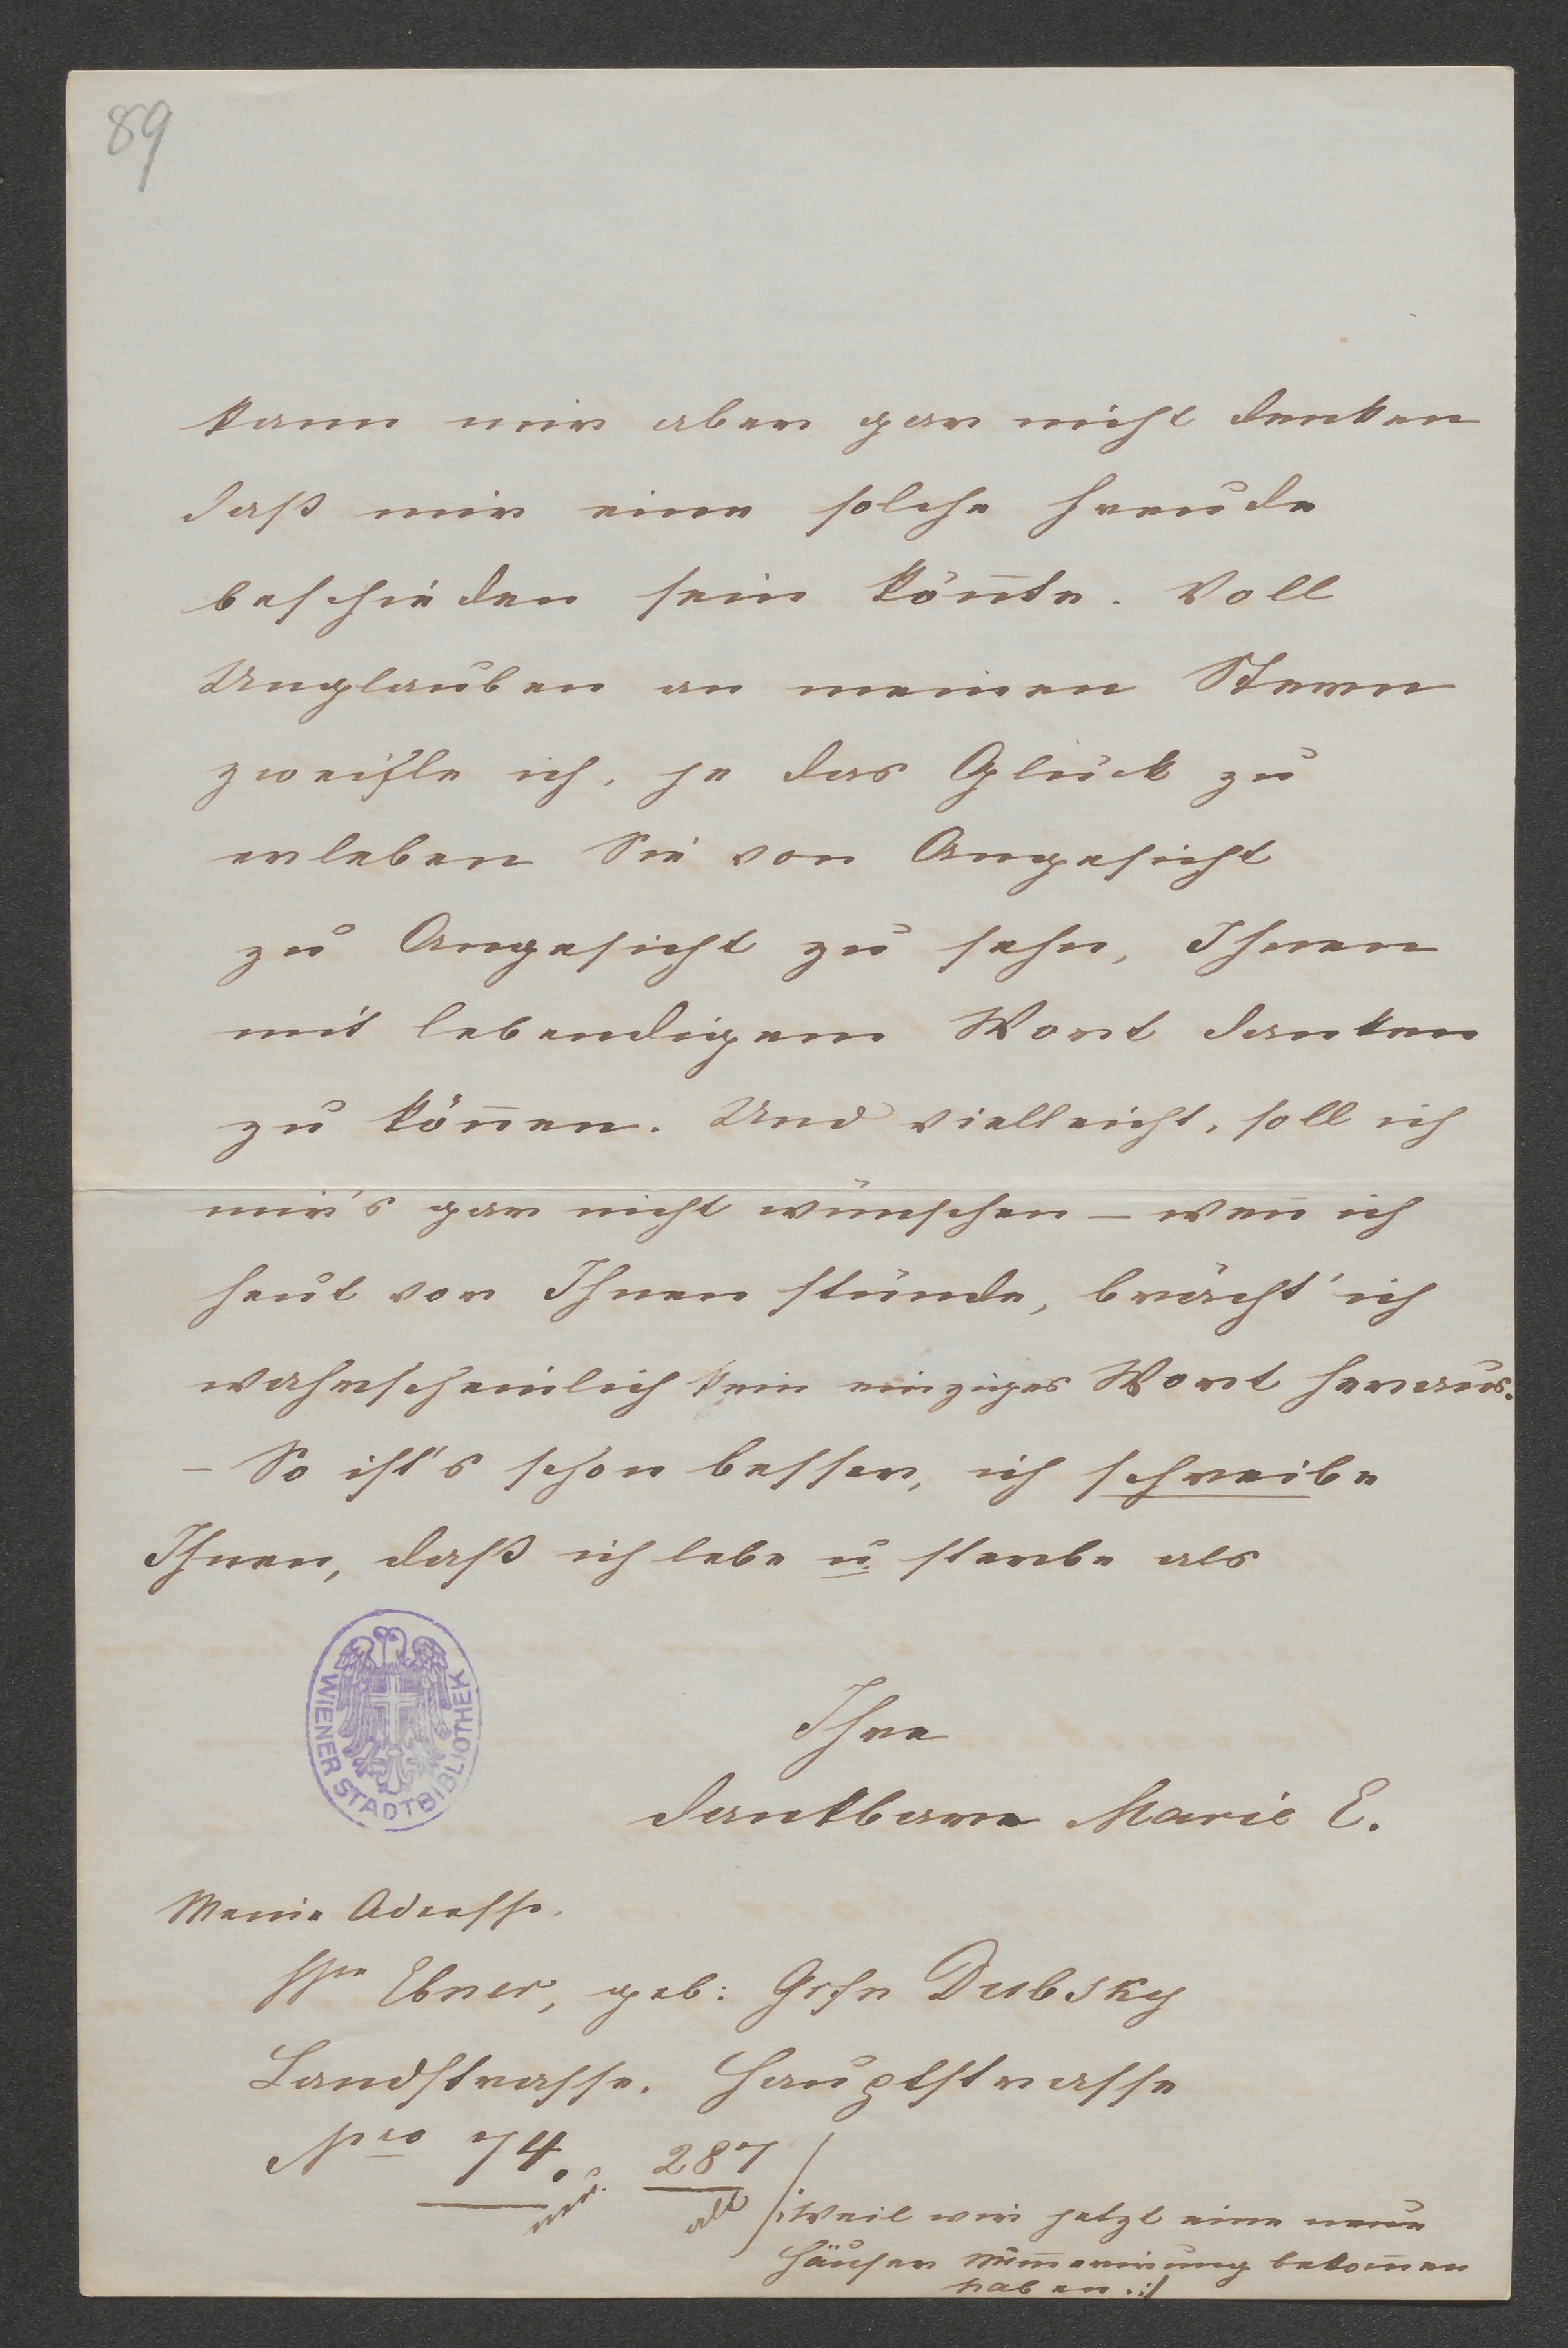 89
kann mir aber gar nicht denken
daß mir eine solche Freude
beschieden sein kön̄te. Voll
Unglauben an meinen Stern
zweifle ich, je das Glück zu
erleben Sie von Angesicht
zu Angesicht zu sehn, Ihnen
mit lebendigem Wort danken
zu kön̄en. Und vielleicht, soll ich
mir's gar nicht wünschen – wen̄ ich
heut vor Ihnen stünde, brächt' ich
wahrscheinlich kein einziges Wort heraus.
– So ist's schon besser, ich schreibe
Ihnen, daß ich lebe u. sterbe als
Ihre
dankbare Marie E.
WIENER STADTBIBLIOTHEK
Meine Adresse.
Ebner, geb: Grfn Dubsky
Landstrasse. Hauptstrasse
Nro 74. 287
neu. alt /: Weil wir jetzt eine neue
Häuser Num̄erirung bekom̄en
haben :/